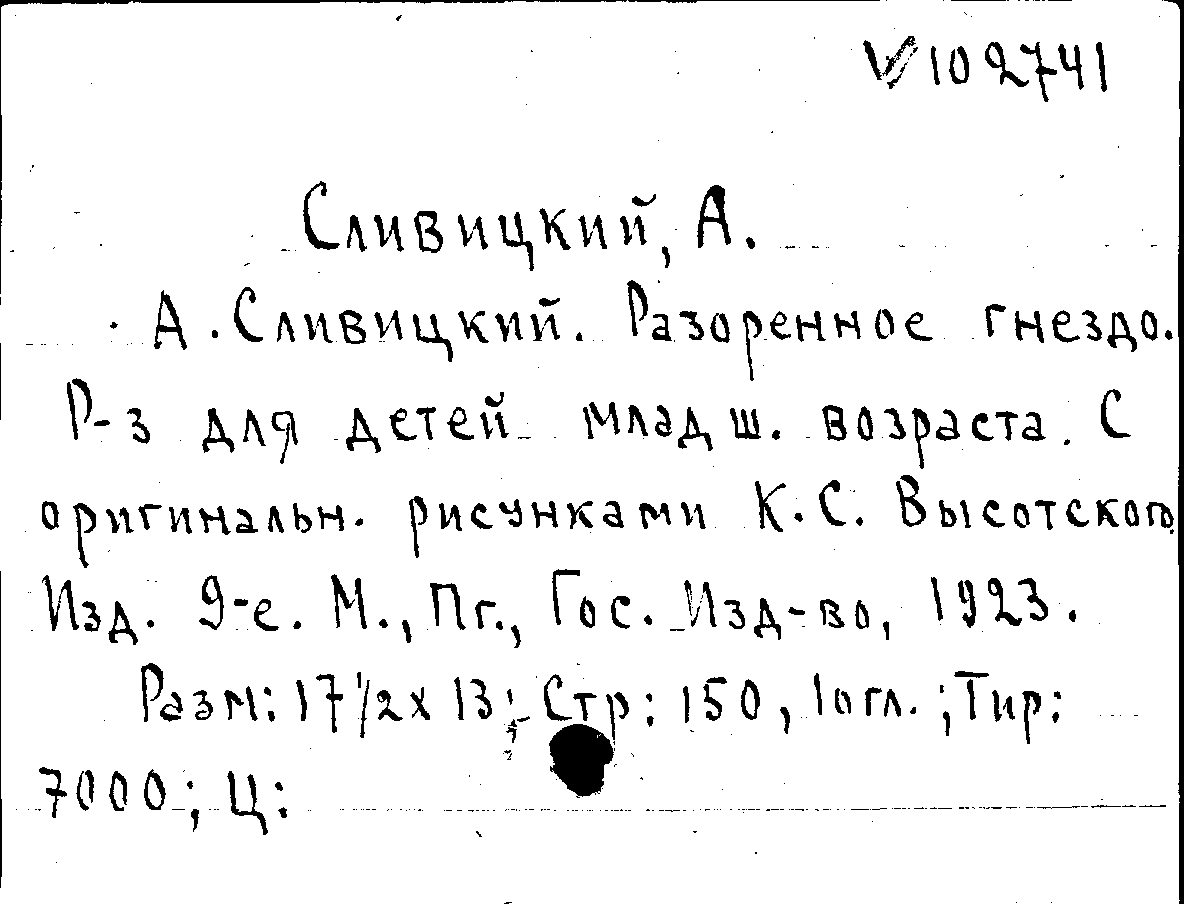 V 102741
Сливицкий, А.
А. Сливицкий. Разоренное гнездо.
Р-з для детей младш. возраста. С
оригинальн. рисунками К.С. Высотского
Изд. 9-е. М., Пг., Гос. Изд-во, 1923.
Разм: 17 1/2 х 13; Стр: 150, 1 огл.; Тир:
7000; Ц: